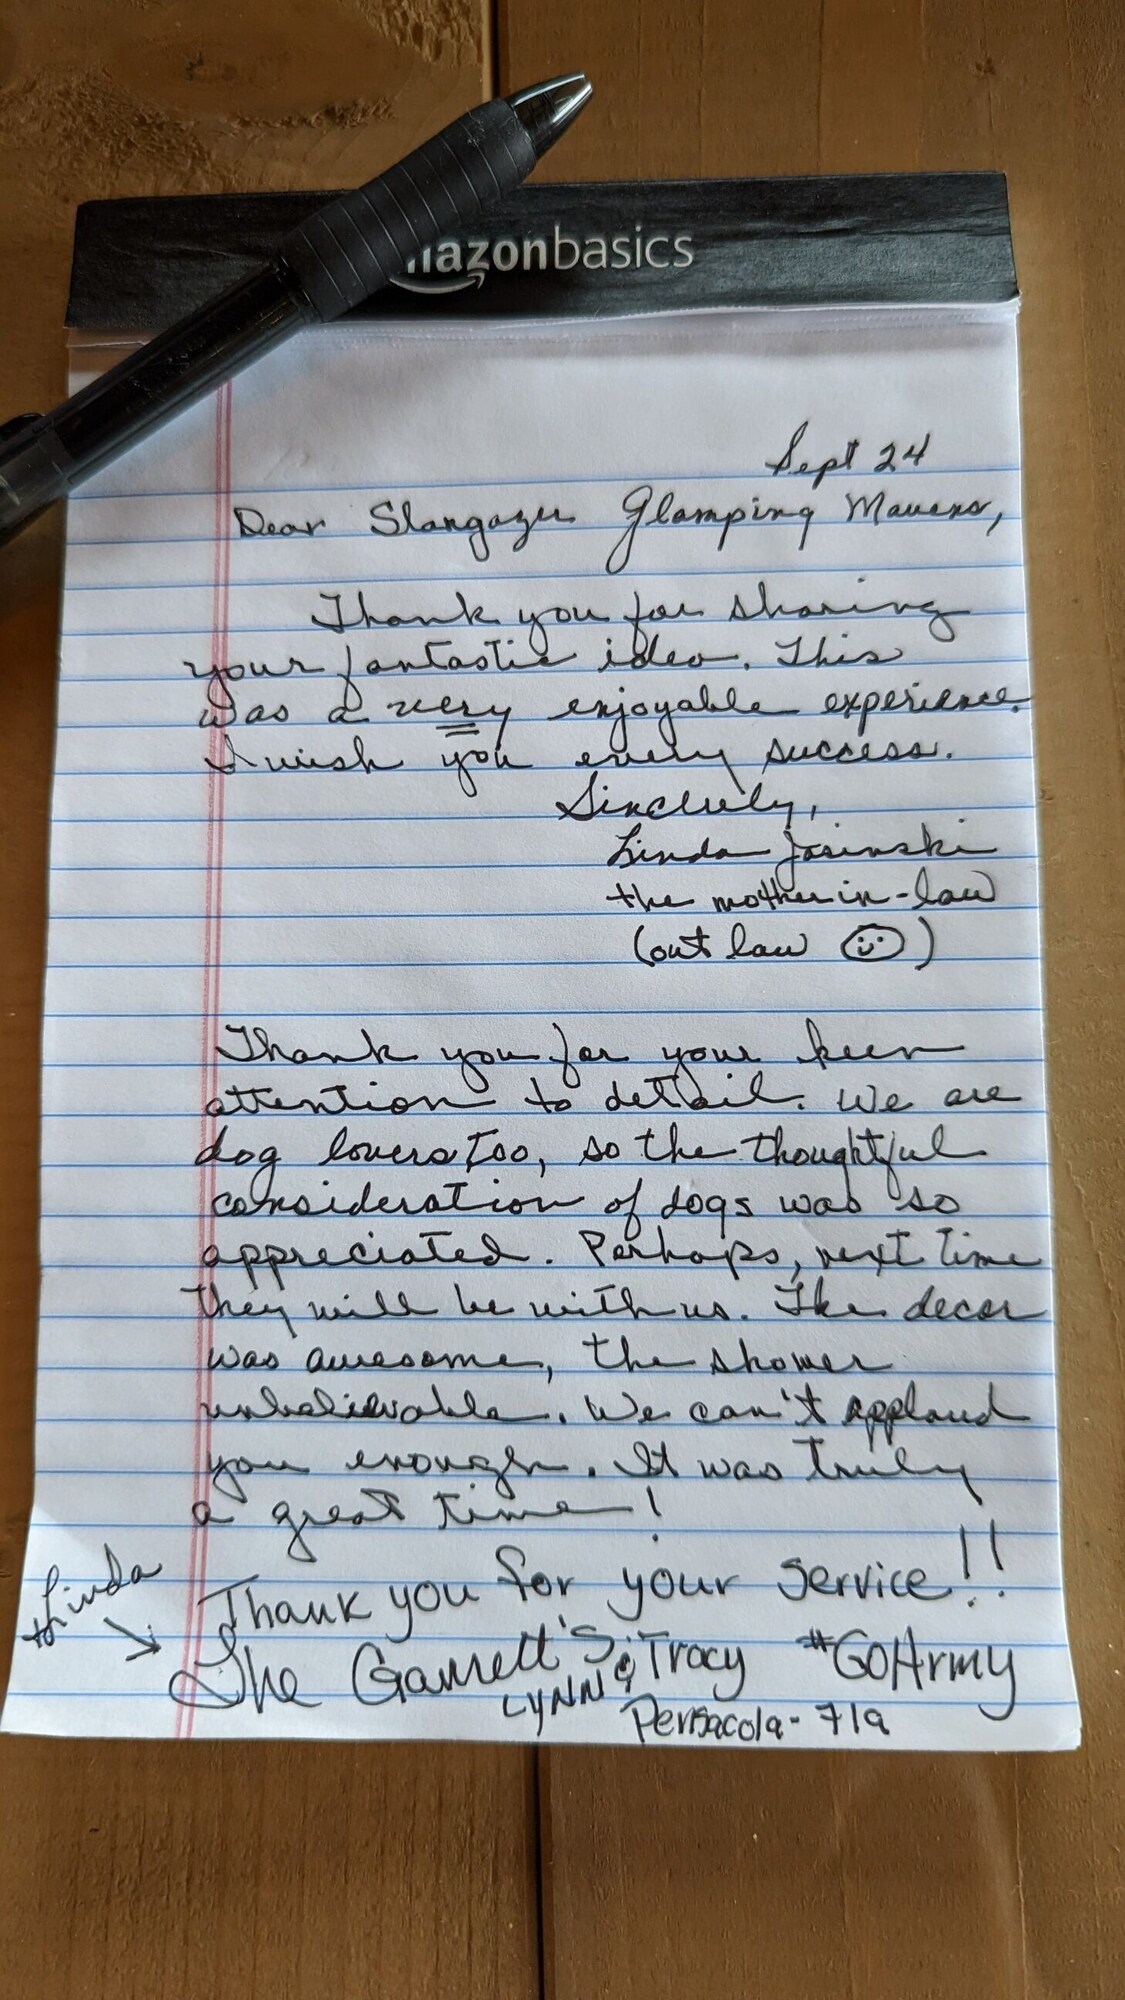 amazonbasics
Sept 24
Dear Stargazer Glamping Mavens,
Thank you for sharing
your fantastic idea. This
was a very enjoyable experience.
I wish you every success.
Sincerely,
Linda Josinski
the mother in-law
(out law )
Thank you for your keen
attention to detail. We are
dog lovers too, so the thoughtful
consideration of dogs was so
appreciated. Perhaps, next time
they will be with us. The decor
was awesome, the shower
unbelievable. We can't applaud
you enough. It was truly
a great time!
Thank you for your service!!
Linda
The Garrett's #GOArmy
LYNN & Tracy
Pensacola - 7la